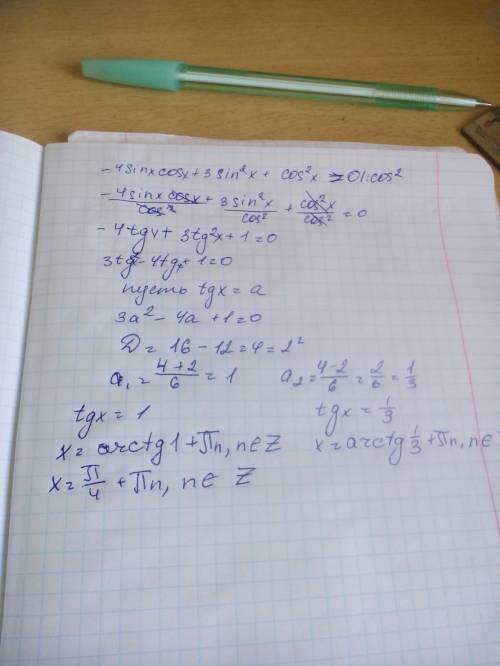 -4sinxcosx+3sin²x + cos²x = 0 |: cos²
-4sinx cosx/cos² + 3sin²x/cos² + cos²x/cos² = 0
-4tgx + 3tg²x + 1 = 0
3tg²x - 4tgx + 1 = 0
пусть tgx = a
3a² - 4a + 1 = 0
D = 16 - 12 = 4 = 2²
a₁ = 4+2/6 = 1 a₂ = 4-2/6 = 2/6 = 1/3
tgx = 1 tgx = 1/3
x = arctg1 + πn, n∈Z x = arctg 1/3 + πn, n∈
x = π/4 + πn, n∈ Z